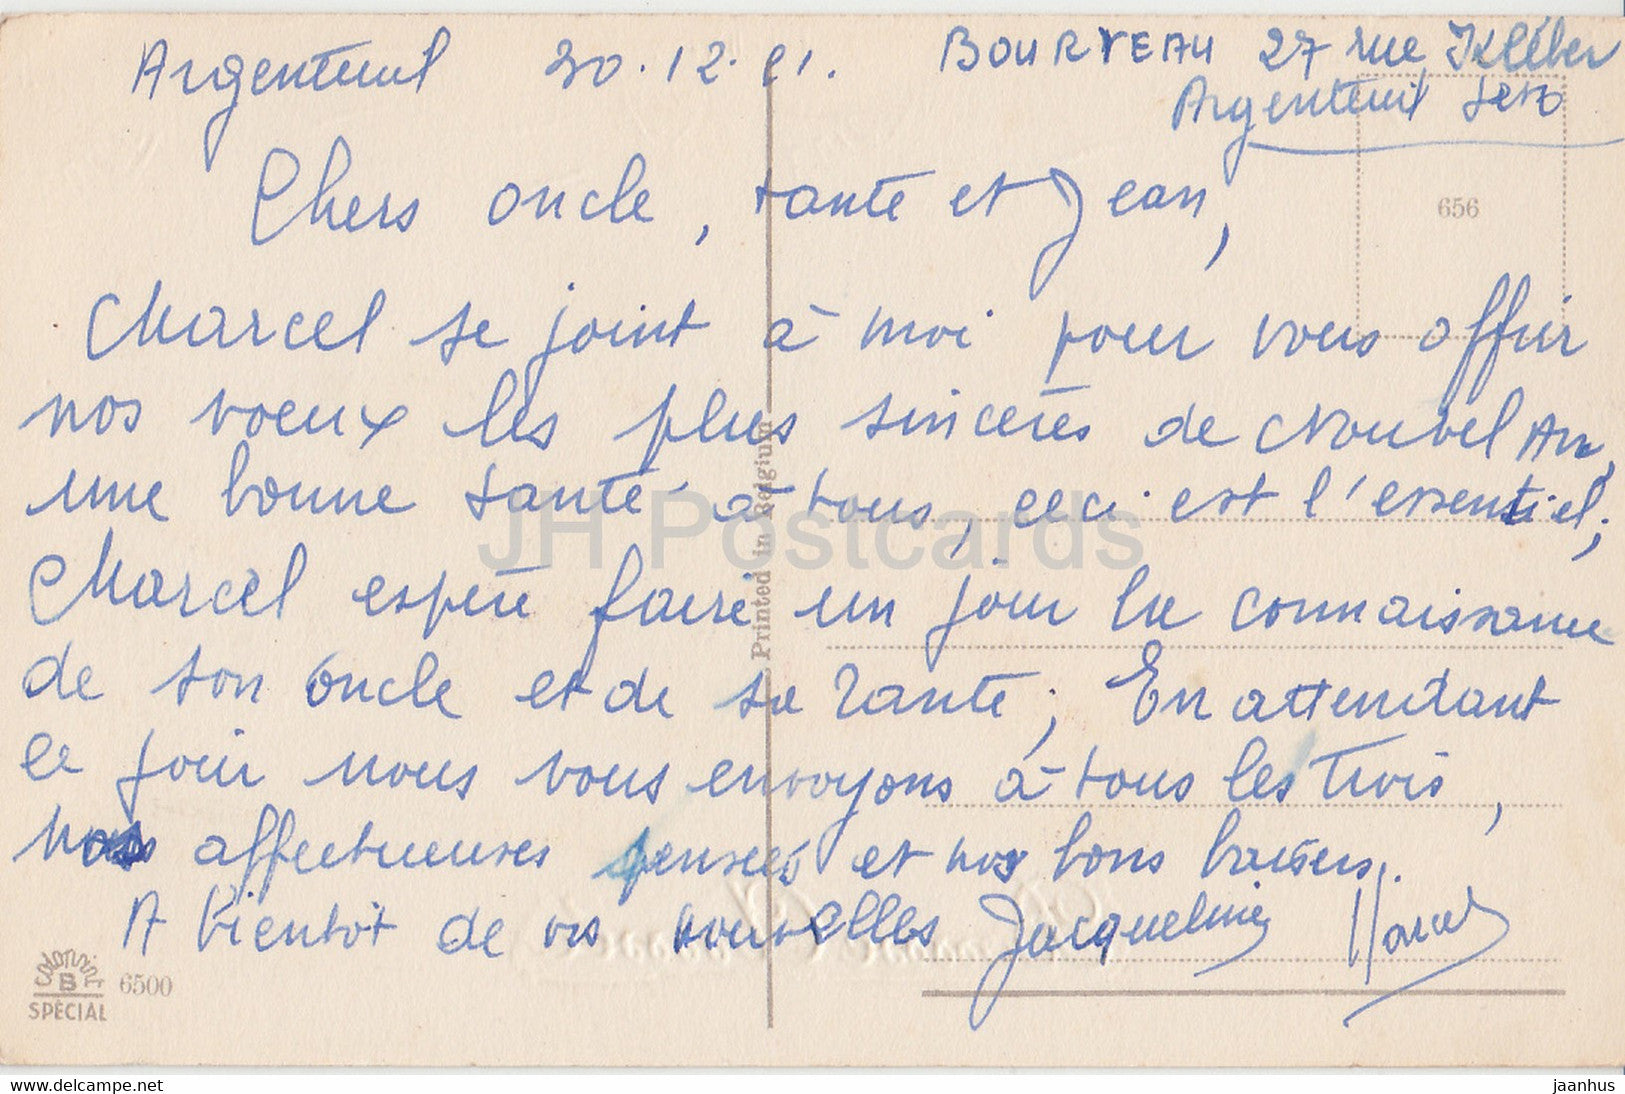 Argenteuil 30.12.61. BOURVEAU 27 rue Kléber
Argenteuil
656
Chers oncle, tante et Jean,
Marcel se joint à moi pour vous offrir
nos voeux les plus sincères de Nouvel An,
une bonne santé à tous, ceci est l'essentiel;
Marcel espère faire un jour la connaissance
de son oncle et de sa tante; En attendant
ce jour nous vous envoyons à tous les trois,
nos affectueuses pensées et nos bons baisers.
A bientôt de vos nouvelles Jacqueline Marcel
Printed in Belgium
COLORPRINT
B
SPÉCIAL
6500
JH Postcards
www.delcampe.net
jaanhus